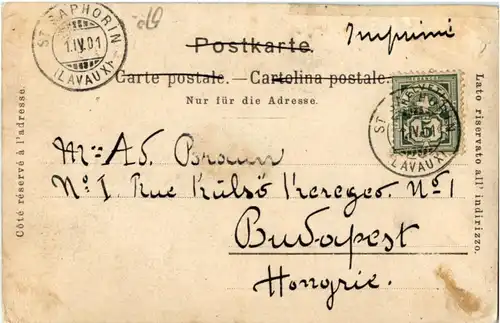 ST SAPHORIN
1.IV.01
(LAVAUX)
Imprimé
Postkarte.
Carte postale. — Cartolina postale.
Nur für die Adresse.
Côté réservé à l'adresse.
Lato riservato all' indirizzo.
ST SAPHORIN
(LAVAUX)
5
Ad. Braun
No I. Rue Külső Kereges. No 1
Budapest
Hongrie.